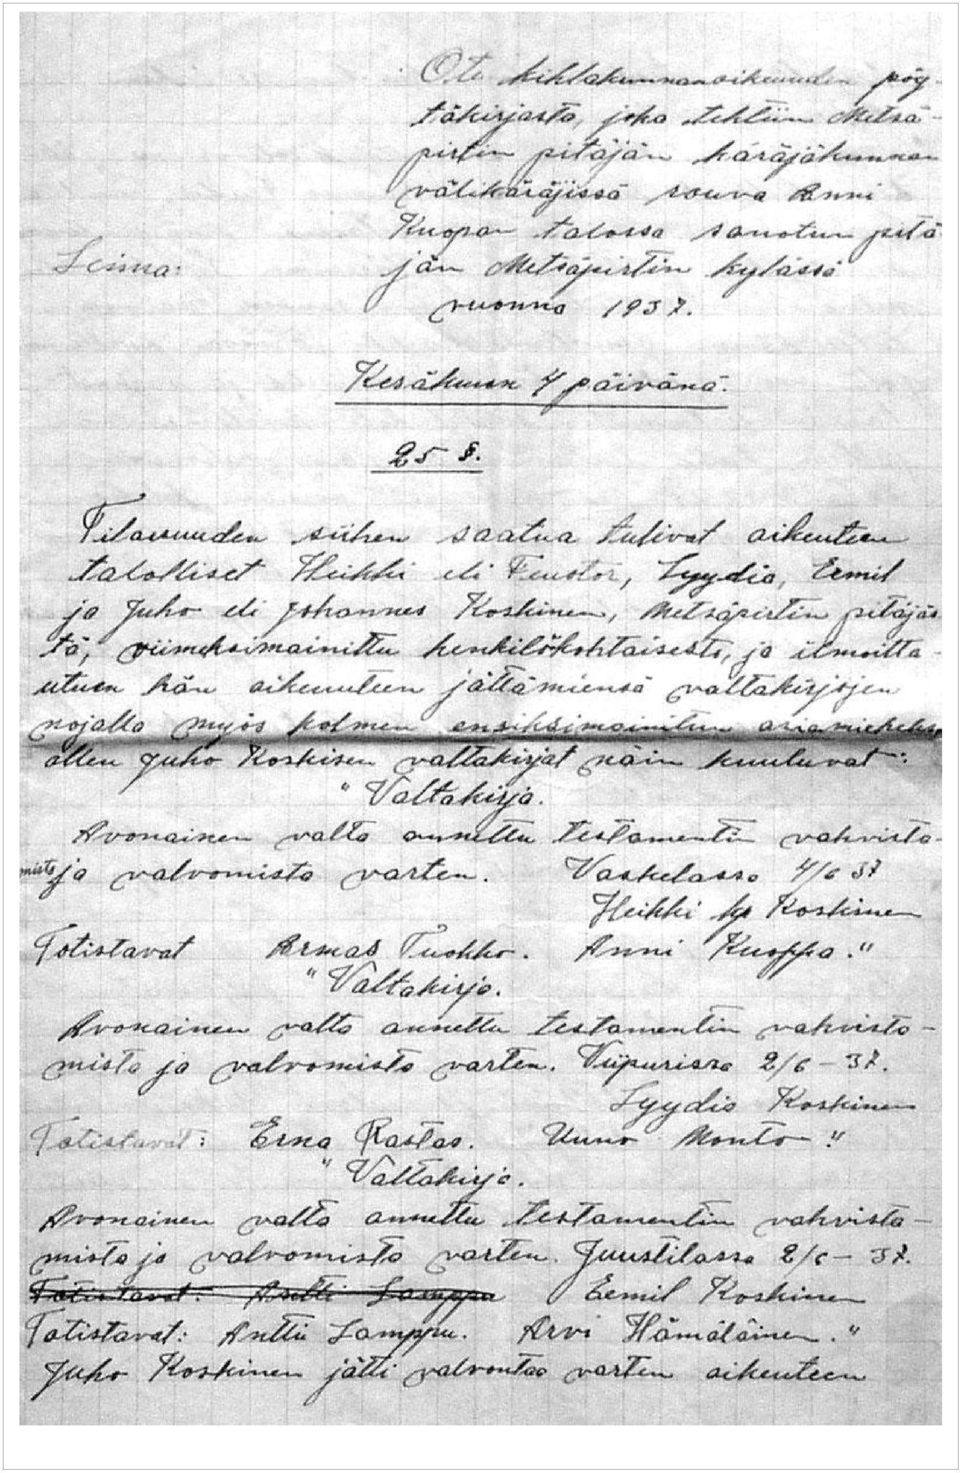 Ote kihlakunnanoikeuden pöy-
täkirjasta, joka tehtiin Metsä-
pirtin pitäjän käräjäkunnan
välikäräjissä rouva Anni
Kuopan talossa sanotun pitä
Leima: jän Metsäpirtin kylässä
vuonna 1937.
Kesäkuun 4 päivänä.
25 §.
Tilaisuuden siihen saatua tulivat oikeuteen
talolliset Heikki eli Feustor, Lyydia, Eemil
ja Juho eli Johannes Koskinen, Metsäpirtin pitäjäs
tä, viimeksimainittu henkilökohtaisesti, ja ilmoitta-
utuen hän oikeuteen jättämiensä valtakirjojen
nojalla myös kolmen ensiksimainitun asiamieheksi
ollen Juho Koskisen valtakirjat näin kuuluvat:
"Valtakirja.
Avonainen valta annettu testamentin vahvista-
mista ja valvomista varten. Vaskelassa 4/6 37
Heikki Koskinen
Totistavat Armas Tuokko. Anni Kuoppa."
"Valtakirja.
Avonainen valta annettu testamentin vahvista-
mista ja valvomista varten. Viipurissa 2/6 - 37.
Lyydia Koskinen
Totistavat: Erna Rastas. Uuno Monto."
"Valtakirja.
Avonainen valta annettu testamentin vahvista-
mista ja valvomista varten. Juustilassa 2/6 - 37.
Totistavat: Antti Lamppu Eemil Koskinen
Totistavat: Anttii Lamppu. Arvi Hämäläinen."
Juho Koskinen jätti valvontaa varten oikeuteen